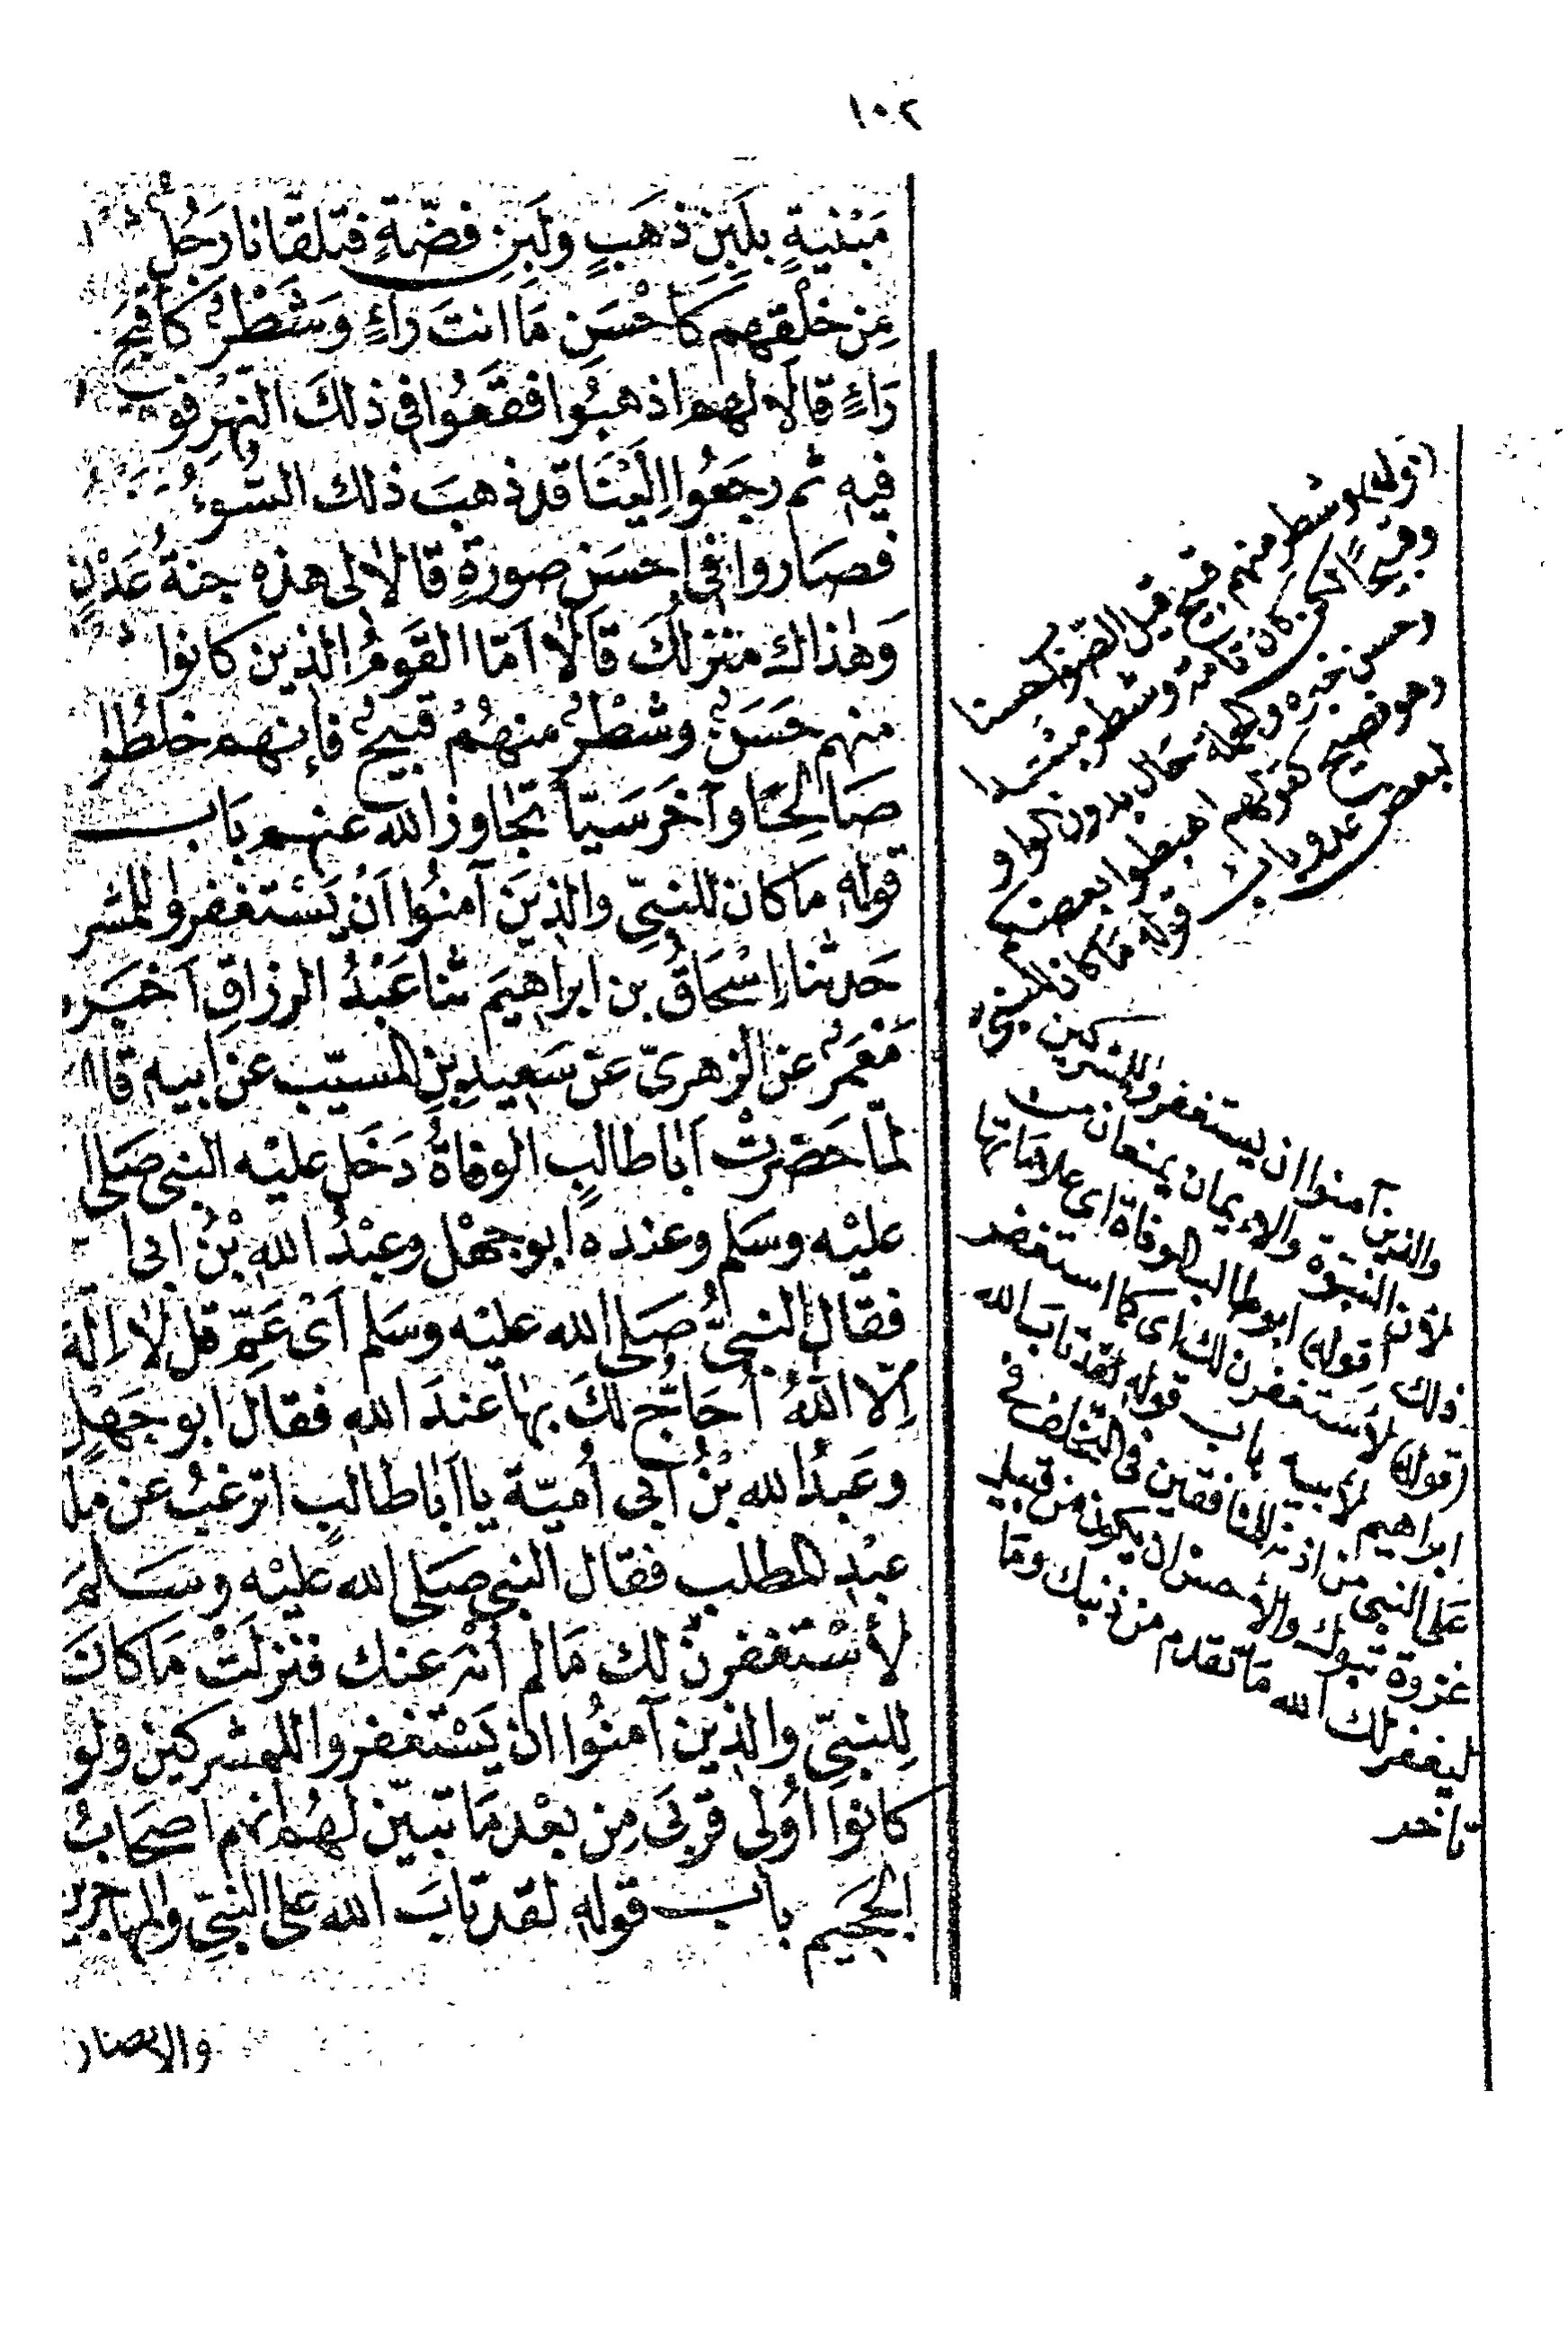 ١٠٢
مَبْنِيَةٍ بِلَبِنِ ذَهَبٍ وَلَبِنِ فضّةٍ فتلقّانا رَجُل
مِن خلْقِهِم كَأحْسَنِ مَا انتَ رَاءٍ وَشَطْرٌ كأقبَحِ
رَاءٍ قالَا لهم اذهبُوا فقَعُوا فى ذلكَ النهرِ فو
فيهِ ثم رجَعُوا اِلَيْنَا قد ذهبَ ذلك السُّوءُ
فصَاروا فى احسَن صورَةٍ قالا لى هذه جنةُ عَدْنٍ
وَهٰذاك منزلكَ قالَا امّا القَومُ الذين كانوا
منهم حَسَنٌ وشطْرٌ منهُمْ قبيحٌ فإنهم خلطُوا
صَالِحًا وآخَرَ سَيّأً تجَاوز الله عنهم بَاب
قوله ما كان للنبىّ والذِينَ آمنُوا اَنْ يَسْتغفروا للمشر
حَدثنا اِسْحَاقُ بن ابراهيمَ ثنا عَبْدُ الرزاقِ اَخبَر
مَعْمَرٌ عَن الزهرىّ عَن سَعِيدِ بنِ المسيّب عَن ابيه قال
لمّا حَضَرتْ اَبا طالبٍ الوفاةُ دَخَل عليْه النبى صَلى
عليْه وسَلم وعنده ابوجهْل وعبْدُ اللهِ بْنُ ابى ا
فقال النبىُّ صَلى الله عليْه وسَلم اَىْ عَمِّ قل لا اِلَهَ
اِلّا اللهُ اُحَاجّ لكَ بهَا عندَ اللهِ فقال ابوجَهْلٍ
وعَبدُ الله بْنُ اَبى اُميّةَ يا اَبَا طالبٍ اترغبُ عن ملة
عبْدِ المطلب فقال النبى صَلى الله عليْه وسَلمَ
لأسْتغفرنّ لك مَالم اُنْهَ عنك فنزلَتْ مَا كانَ
لِلنبىّ والذين آمنُوا ان يَسْتغفروا للمشركين ولو
كانوا اُولى قربَى مِن بعْد مَا تبيّن لهُم انهم اصحَابُ
الجَحِيم بابـ قوله لقد تابَ الله على النبىّ والمهاجرين
والانصار
(قوله وشطر منهم قبيح قيل الصّواب حسنا
وقبيحًا لكن كان تامة وشطر مبتدا
وحسن خبره والجملة حال بدون الواو
وهو فصيح كقولهم اهبطوا بعضكم
لبعض عدو باب قوله مَا كان للنبى
والذين آمنوا ان يستغفروا للمشركين
لأن النبوّة والايمان يمنعان من
ذلك (قوله) ابو طالب الوفاة اى علامَاتها
(قوله) لأستغفرن لك اى كما استغفر
ابراهيم لأبيه باب قوله لقد تاب الله
عَلى النبى من اذنه للمنافقين فى التخلف فى
غزوة تبوك والأحسن ان يكون من قبيل
ليغفر لك الله مَا تقدم من ذنبك ومَا
تأخر